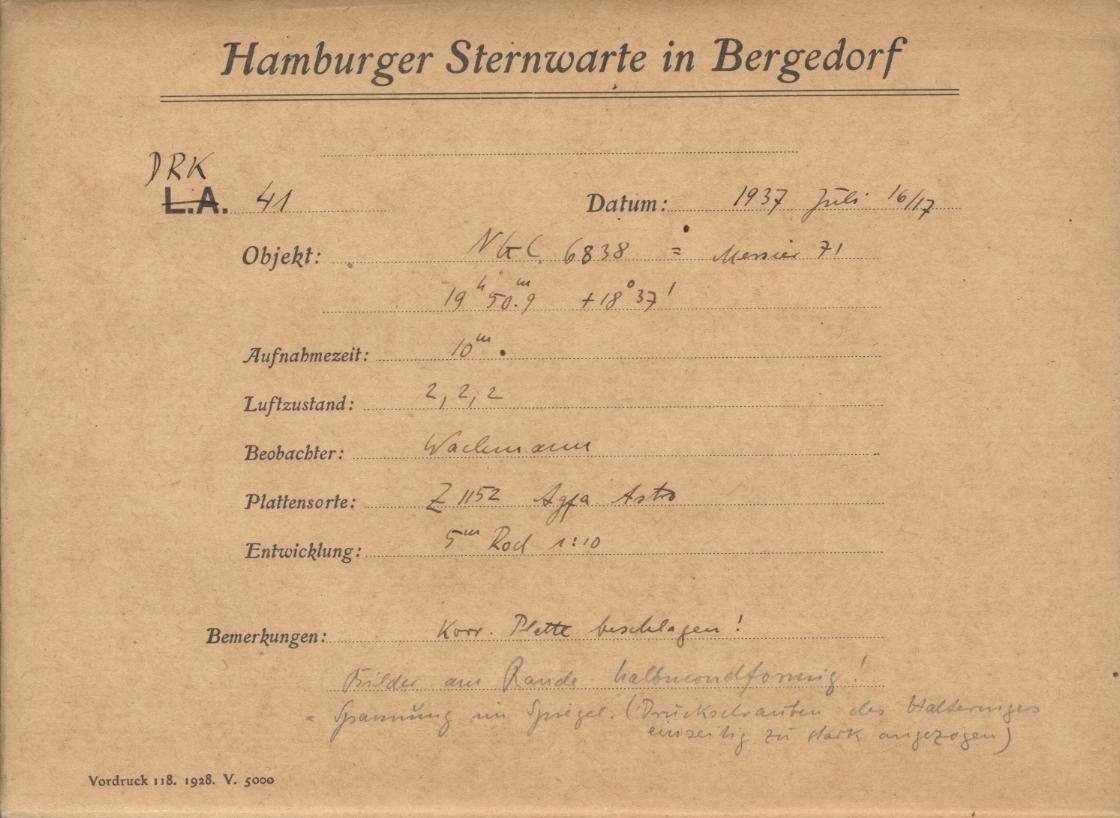 Hamburger Sternwarte in Bergedorf
DRK
L.A. 41 Datum: 1937 Juli 16/17
Objekt: NGC 6838 = Messier 71
19ʰ50ᵐ.9 +18°37'
Aufnahmezeit: 10ᵐ.
Luftzustand: 2, 2, 2
Beobachter: Wachmann
Plattensorte: Z 1152 Agfa Astro
Entwicklung: 5ᵐ Rod 1:10
Bemerkungen: Korr. Platte beschlagen!
Bilder am Rande halbmondförmig!
= Spannung im Spiegel. (Druckschrauben des Halteringes
einseitig zu stark angezogen)
Vordruck 118. 1928. V. 5000